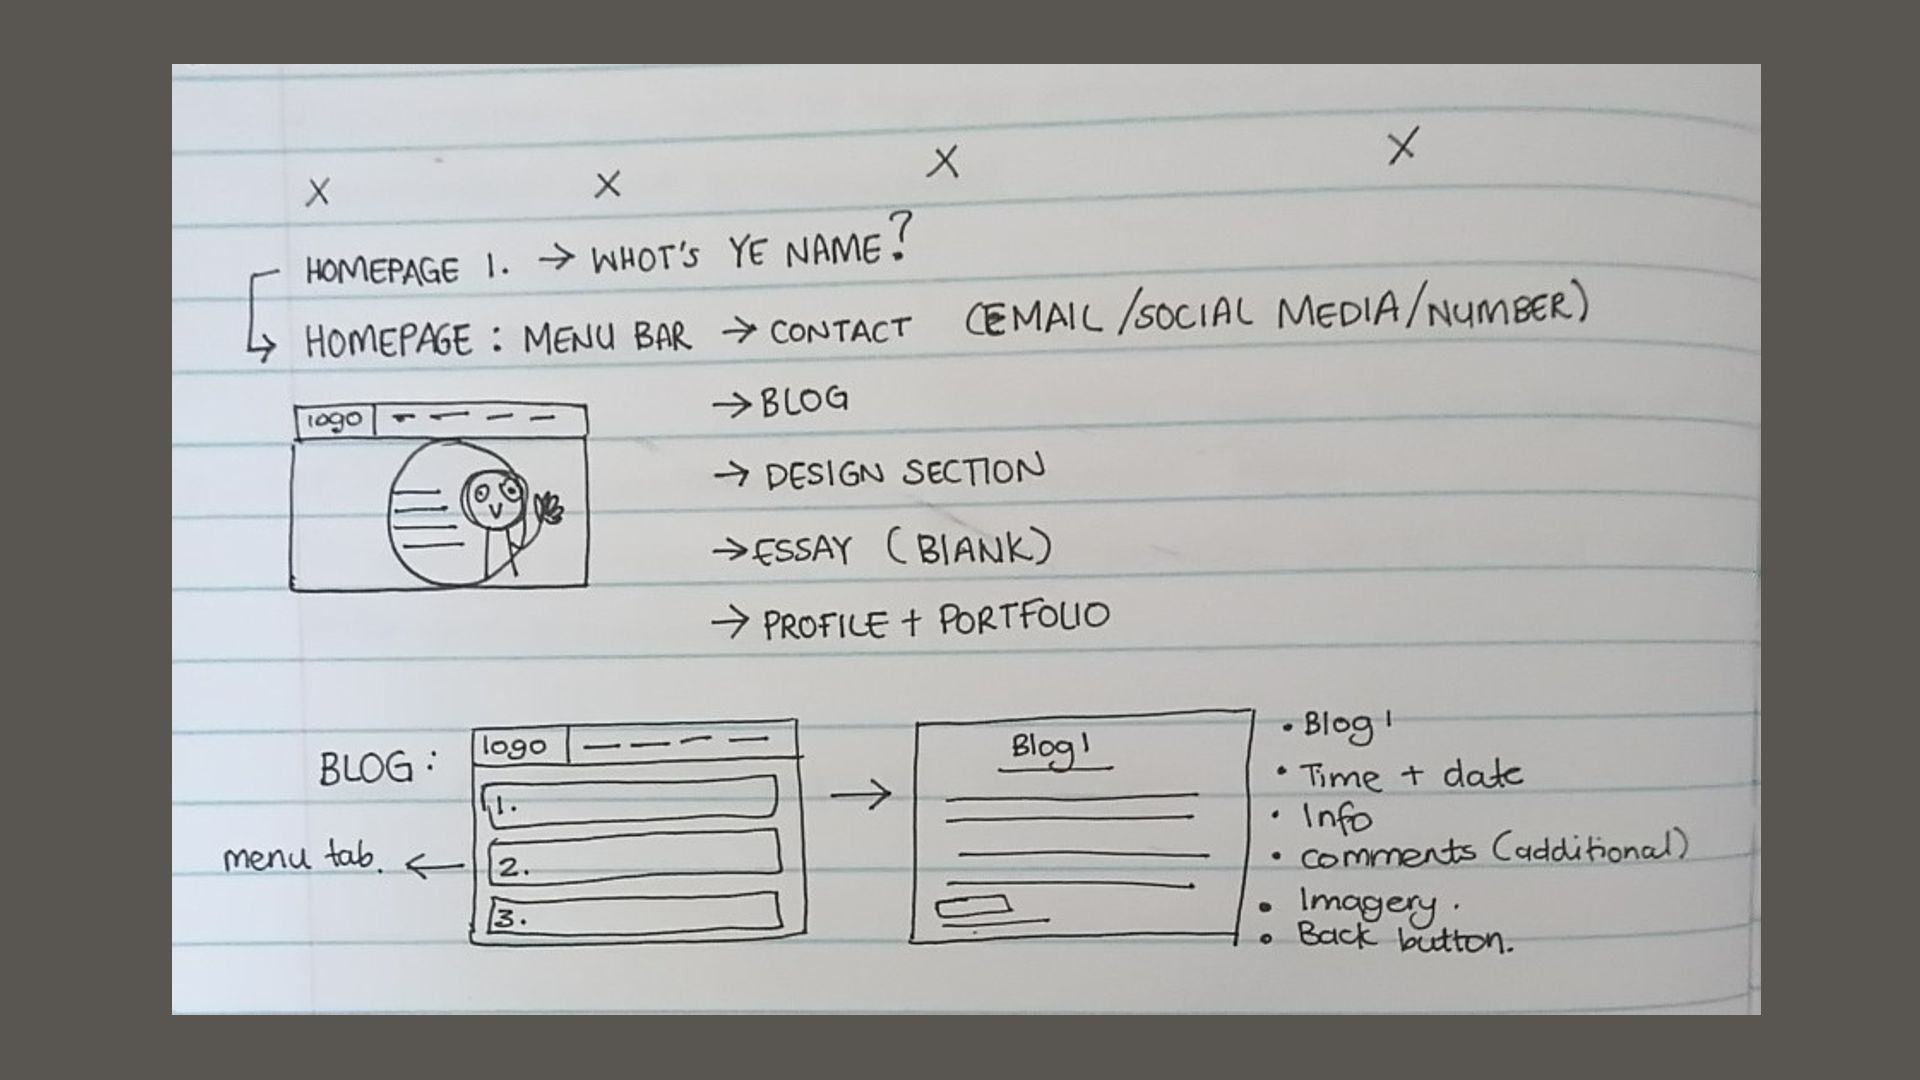 X X X X
HOMEPAGE 1. → WHOT'S YE NAME?
HOMEPAGE : MENU BAR → CONTACT (EMAIL/SOCIAL MEDIA/NUMBER)
→ BLOG
logo
→ DESIGN SECTION
→ ESSAY (BLANK)
→ PROFILE + PORTFOLIO
BLOG :
menu tab. ←
logo
1.
2.
3.
→
Blog 1
• Blog 1
• Time + date
• Info
• comments (additional)
• Imagery.
• Back button.